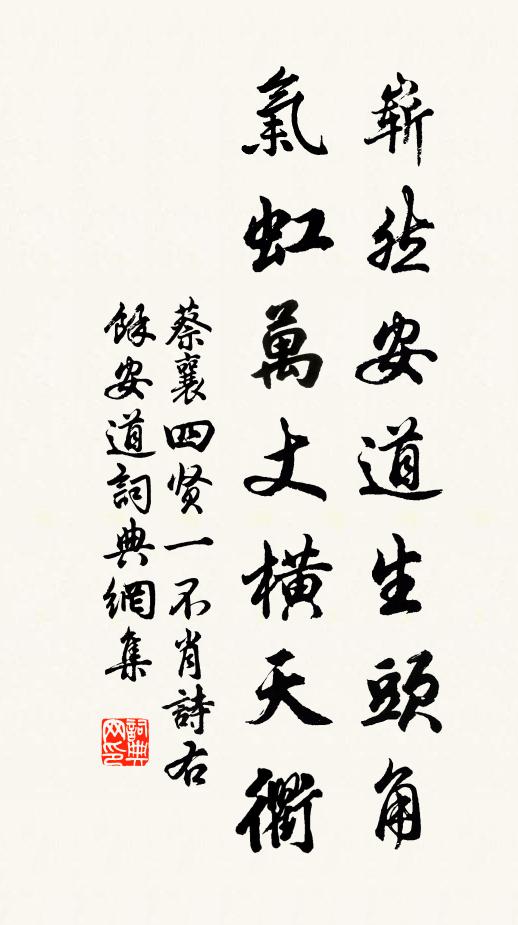 嶄然安道生頭角
氣虹萬丈橫天衢
蔡襄四贤一不肖詩右
餘安道詞典網集
詞典网印